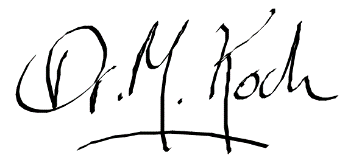 Dr. M. Koch